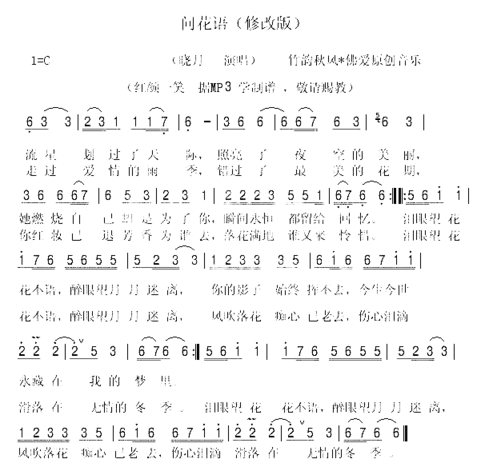 问花语（修改版）
1=C （晓月 演唱） 竹韵秋风*佛爱原创音乐
（红颜一笑 据MP3 学制谱 ，敬请赐教）
6 3 3 | 2 3 1 1 1 7 | 6 - | 3 6 6 | 6 6 7 6 3 | 6 3 |
流星 划过了天 际，照亮了 夜 空的美丽，
走过 爱情的雨 季，错过了 最 美的花期，
3 6 6 6 7 | 6 3 1 2 1 | 2 2 2 3 5 5 1 | 6 7 6 6 :||: 5 6 1 1 |
她燃烧自 己却是为了你，瞬间永恒 都留给 回忆。 泪眼望花
你红妆已 退芳香为谁去，落花满地 谁又来 怜惜。 泪眼望花
1 7 6 5 6 5 5 | 5 2 3 3 | 1 2 3 3 3 5 | 6 1 6 6 7 1 1 |
花不语，醉眼望月月迷离， 你的影子 始终挥不去，今生今世
花不语，醉眼望月月迷离， 风吹落花 痴心已老去，伤心泪滴
2 2 2 | 2 2 5 3 | 6 7 6 6 :| 5 6 1 1 | 1 7 6 5 6 5 5 | 5 2 3 3 |
永藏在 我的梦里
滑落在 无情的冬季。 泪眼望花 花不语，醉眼望月月迷离，
1 2 3 3 3 5 | 6 1 6 6 7 1 1 | 2 2 2 | 2 2 5 3 | 6 7 6 6 ||
风吹落花 痴心已老去，伤心泪滴 滑落在 无情的冬季。